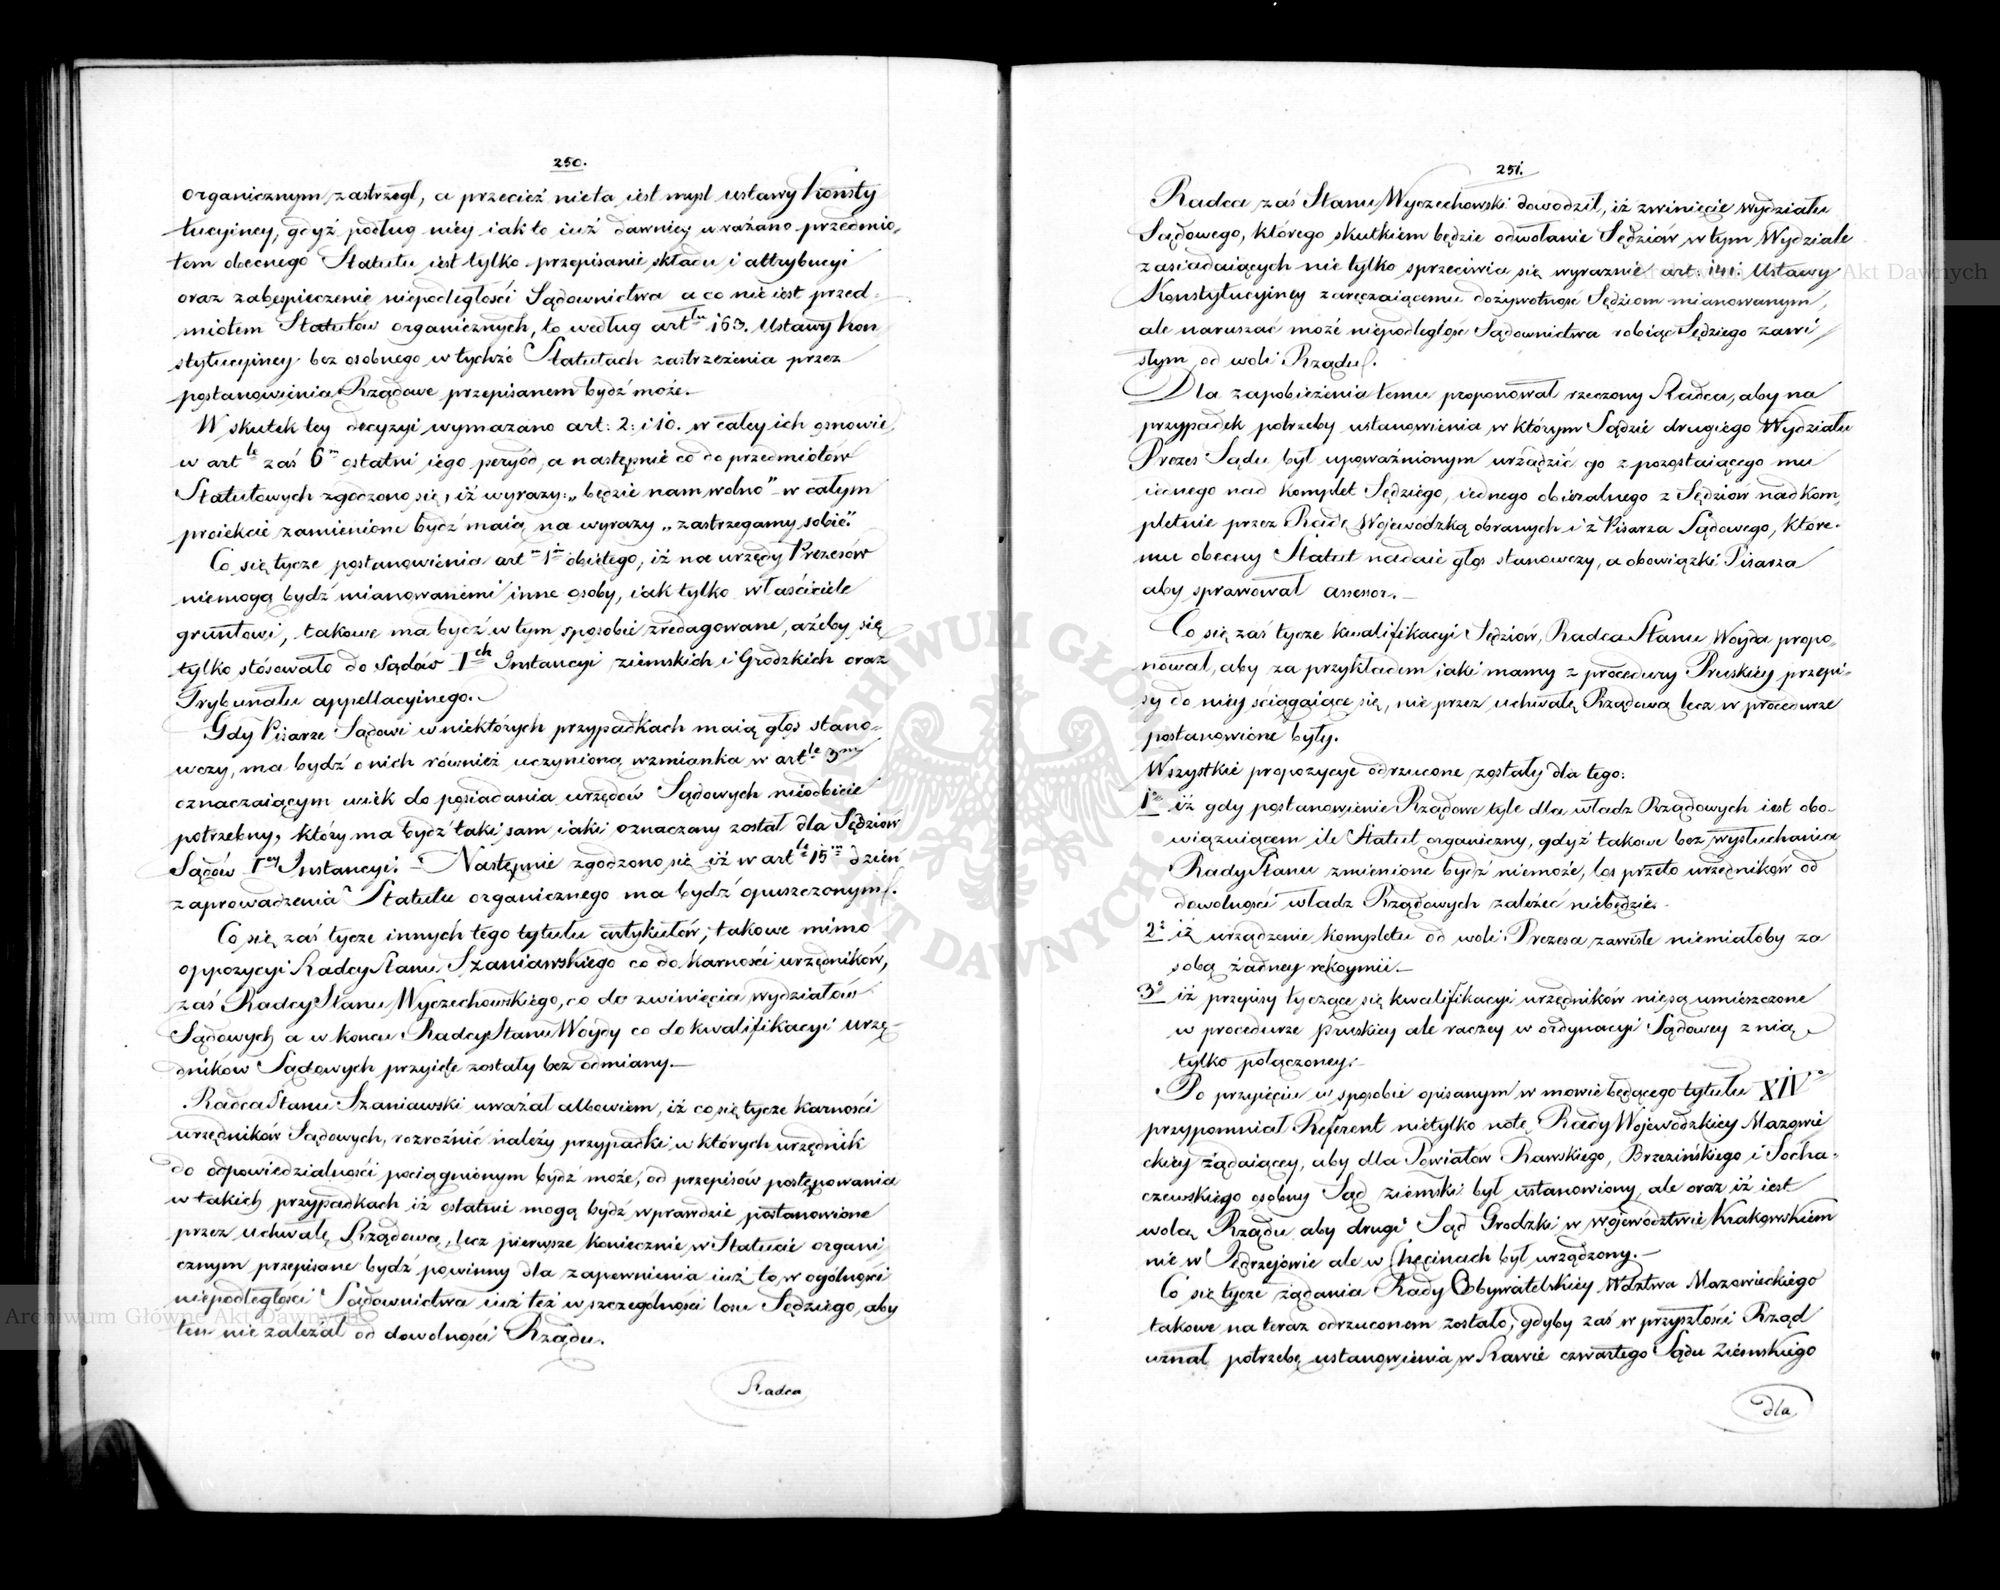 250.
organicznym zastrzegł, a przecież nie ta iest mysl ustawy Konsty
tucyiney, gdyż podług niey iak to iuż dawniey uważano przedmio-
tem obecnego Statutu iest tylko przepisanie składu i attrybucyi
oraz zabezpieczenie niepodległości Sądownictwa a co nie iest przed-
miotem Statutów organicznych, to według art:łu 163. Ustawy Kon
stytucyiney bez osobnego w tychże Statutach zastrzeżenia przez
postanowienia Rządowe przepisanem bydź może.
W skutek tey decyzyi wymazano art: 2: i 10. w całey ich osnowie,
w art:le zaś 6m ostatni iego peryod, a następnie co do przedmiotów
Statutowych zgodzono się, iż wyrazy: „będzie nam wolno" w całym
proiekcie zamienione bydź maią na wyrazy „zastrzegamy sobie."
Co się tycze postanowienia art: 1o obiętego, iż na urzędy Prezesów
niemogą bydź mianowanemi inne osoby, iak tylko właściciele
gruntowi, takowe ma bydź w tym sposobie zredagowane, ażeby się
tylko stósowało do Sądów Ich Instancyi ziemskich i Grodzkich oraz
Trybunału appellacyinego.
Gdy Pisarze Sądowi w niektórych przypadkach maią głos stano-
wczy, ma bydź o nich również uczynioną wzmianka w art:le 3m
oznaczaiącym wiek do posiadania urzędów Sądowych nieodbicie
potrzebny, który ma bydź taki sam iaki oznaczony został dla Sędziów
Sądów Iey Instancyi. – Następnie zgodzono się iż w art:le 15m dzień
zaprowadzenia Statutu organicznego ma bydź opuszczonym.
Co się zaś tycze innych tego tytułu artykułów, takowe mimo
oppozycyi Radcy Stanu Szaniawskiego co do karności urzędników,
zaś Radcy Stanu Wyczechowskiego, co do zwinięcia wydziałów
Sądowych a w końcu Radcy Stanu Woydy co do kwalifikacyi urzę-
dników Sądowych przyięte zostały bez odmiany.—
Radca Stanu Szaniawski uważał albowiem, iż co się tycze karności
urzędników Sądowych, rozróżnić należy przypadki w których urzędnik
do odpowiedzialności pociągnionym bydź może, od przepisów postępowania
w takich przypadkach iż ostatnie mogą bydź wprawdzie postanowione
przez uchwałę Rządową, lecz pierwsze koniecznie w Statucie organi
cznym przepisane bydź powinny dla zapewnienia iuż to w ogólności
niepodległości Sądownictwa iuż też w szczególności losu Sędziego, aby
ten nie zależał od dowolności Rządu.
Radca
251.
Radca zaś Stanu Wyczechowski dowodził, iż zwinięcie wydziału
Sądowego, którego skutkiem będzie odwołanie Sędziów w tym Wydziale
zasiadaiących nie tylko sprzeciwia się wyraznie art: 141. Ustawy
Konstytucyiney zaręczaiącemu dożywotność Sędziom mianowanym,
ale naruszać może niepodległość Sądownictwa robiąc Sędziego zawi
słym od woli Rządu.
Dla zapobieżenia temu proponował rzeczony Radca, aby na
przypadek potrzeby ustanowienia w którym Sądzie drugiego Wydziału
Prezes Sądu był upoważnionym urządzić go z pozostaiącego mu
iednego nad komplet Sędziego, iednego obieralnego z Sędziów nad kom-
pletnie przez Radę Wojewódzką obranych i z Pisarza Sądowego, które-
mu obecny Statut nadaie głos stanowczy, a obowiązki Pisarza
aby sprawował assesor.—
Co się zaś tycze kwalifikacyi Sędziów, Radca Stanu Woyda propo-
nował, aby za przykładem iaki mamy z procedury Pruskiey przepi-
sy do niey ściągaiące się, nie przez uchwałę Rządową lecz w procedurze
postanowione były.
Wszystkie propozycye odrzucone zostały dla tego:
1o iż gdy postanowienie Rządowe tyle dla władz Rządowych iest obo-
wiązuiącem ile Statut organiczny, gdyż takowe bez wysłuchania
Rady Stanu zmienione bydź niemoże, los przeto urzędników od
dowolności władz Rządowych zależeć niebędzie.
2o iż urządzenie kompletu od woli Prezesa zawisłe niemiałoby za
sobą żadney rękoymii.—
3o iż przepisy tyczące się kwalifikacyi urzędników nie są umieszczone
w procedurze pruskiey ale raczey w ordynacyi Sądowey z nią
tylko połączoney.
Po przyięciu w sposobie opisanym w mowie będącego tytułu XIVo
przypomniał Referent nietylko notę Rady Wojewódzkiey Mazowie
ckiey żądaiącey, aby dla Powiatów Rawskiego, Brzezińskiego i Socha-
czewskiego osobny Sąd ziemski był ustanowiony, ale oraz iż iest
wolą Rządu aby drugi Sąd Grodzki w województwie Krakowskiem
nie w Jędrzejowie ale w Chęcinach był urządzony.—
Co się tycze żądania Rady Obywatelskiey Wdztwa Mazowieckiego
takowe na teraz odrzuconem zostało, gdyby zaś w przyszłości Rząd
uznał potrzebę ustanowienia w Rawie czwartego Sądu Ziemskiego
dla
ARCHIWUM GŁÓWNE AKT DAWNYCH
Archiwum Główne Akt Dawnych
Akt Dawnych